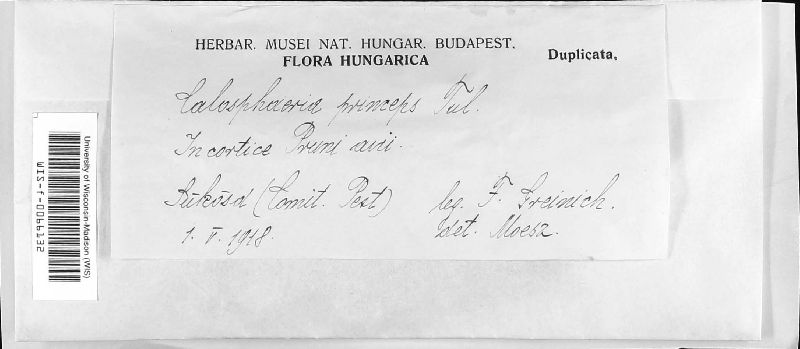 HERBAR. MUSEI NAT. HUNGAR. BUDAPEST.
FLORA HUNGARICA
Duplicata.
Calosphaeria princeps Tul.
In cortice Pruni avii.
Sükösd (Comit. Pest)
leg. F. Greinich.
1. V. 1918.
det. Moesz.
University of Wisconsin-Madison (WIS)
WIS-f-0066132